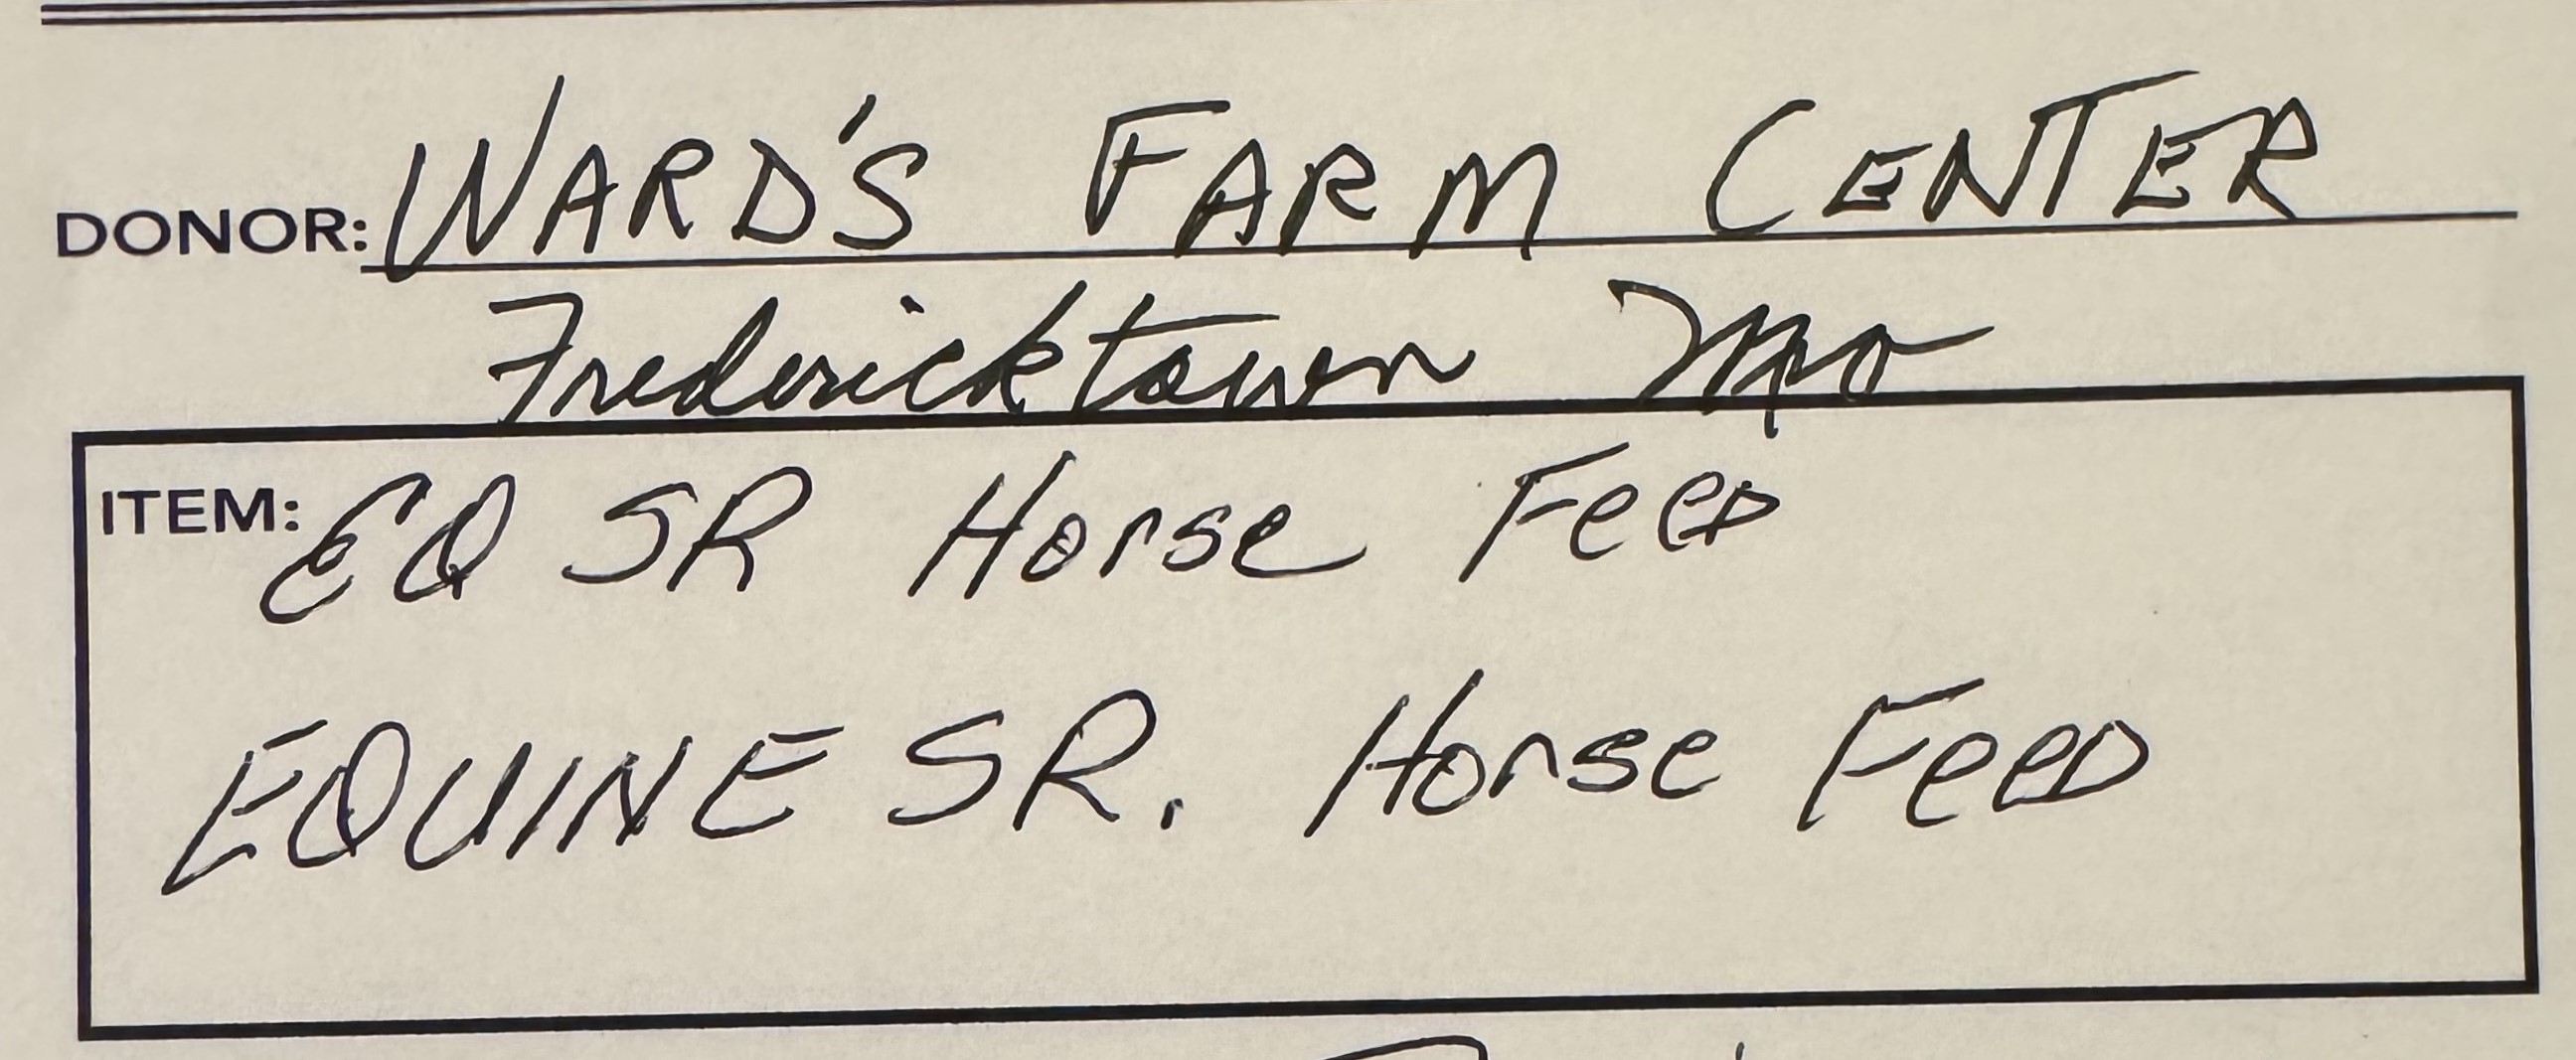 DONOR: WARD'S FARM CENTER
Fredericktown Mo
ITEM: EQ SR Horse FeeD
EQUINE SR. Horse FeeD